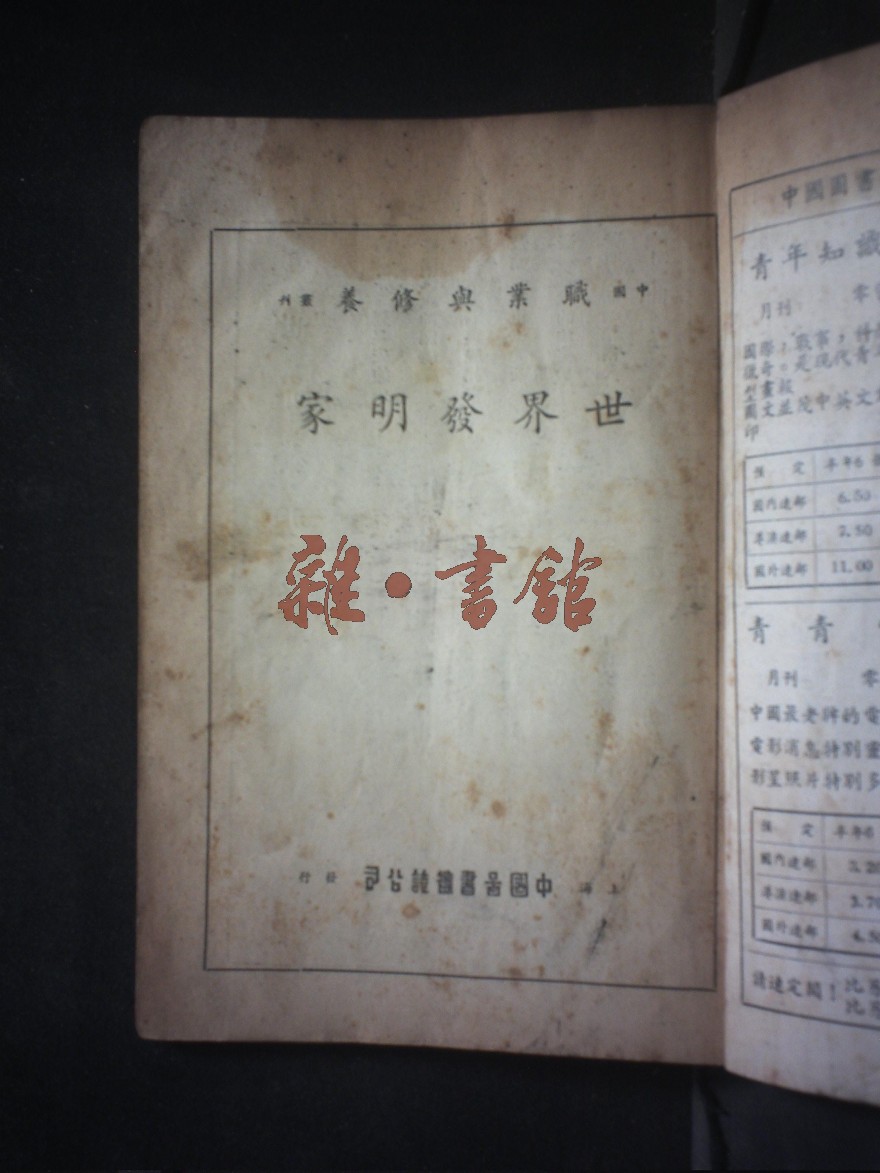 中國職業與修養叢刊
世界發明家
雜·書館
上海中國圖書雜誌公司發行
中國圖書
青年知識
月刊 零
國際,戰事,
獵奇。是現代青
型畫報
圖文並 中英文
印
預定 半年6
國內連郵 6.50
港澳連郵 7.50
國外連郵 11.00
青青
月刊 零
中國最老牌的電
電影消息特別靈
影星照片特別多
預定 半年6
國內連郵 3.20
港澳連郵 3.70
國外連郵 4.50
請速定閱!比
比